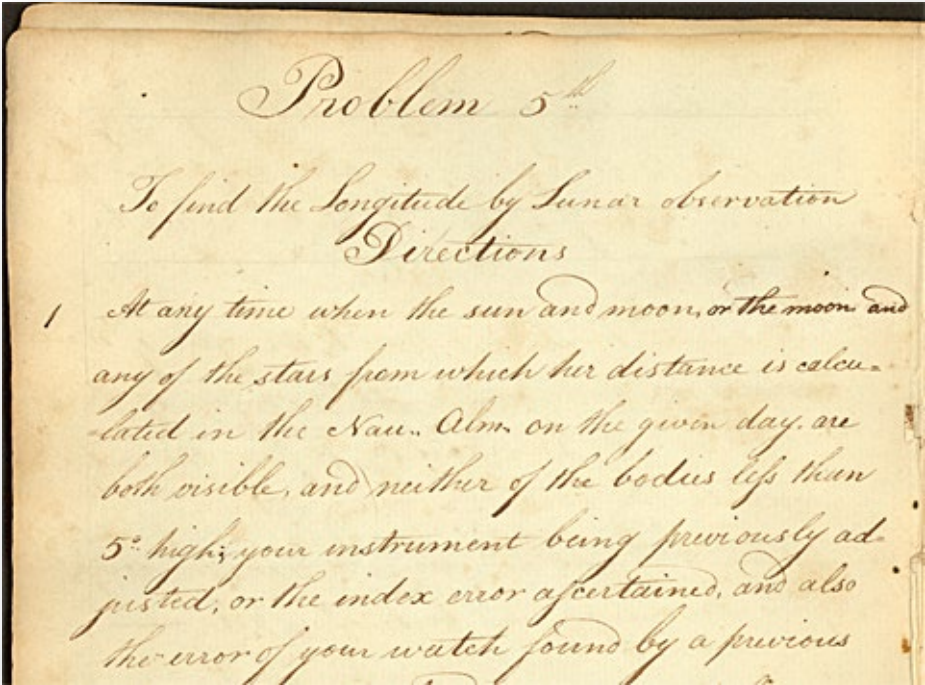 Problem 5th
To find the Longitude by Lunar observation
Directions
1 At any time when the sun and moon, or the moon and
any of the stars from which her distance is calcu-
-lated in the Nau.. Alm. on the given day. are
both visible, and neither of the bodies less than
5° high; your instrument being previously ad-
justed, or the index error ascertained, and also
the error of your watch found by a previous